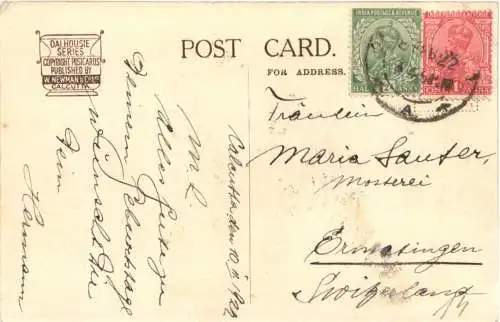 DALHOUSIE
SERIES
COPYRIGHT POSTCARDS
PUBLISHED BY
W. NEWMAN & Co.
CALCUTTA
POST CARD.
FOR ADDRESS.
INDIA POSTAGE & REVENUE
HALF ANNA
Calcutta den 10. 1922
M. L.
Alles gute zu
Deinem Geburtstage
wünscht Dir
Dein
Hermann
Fräulein
Maria Sauter,
Mosterei
Ermatingen
Switzerland